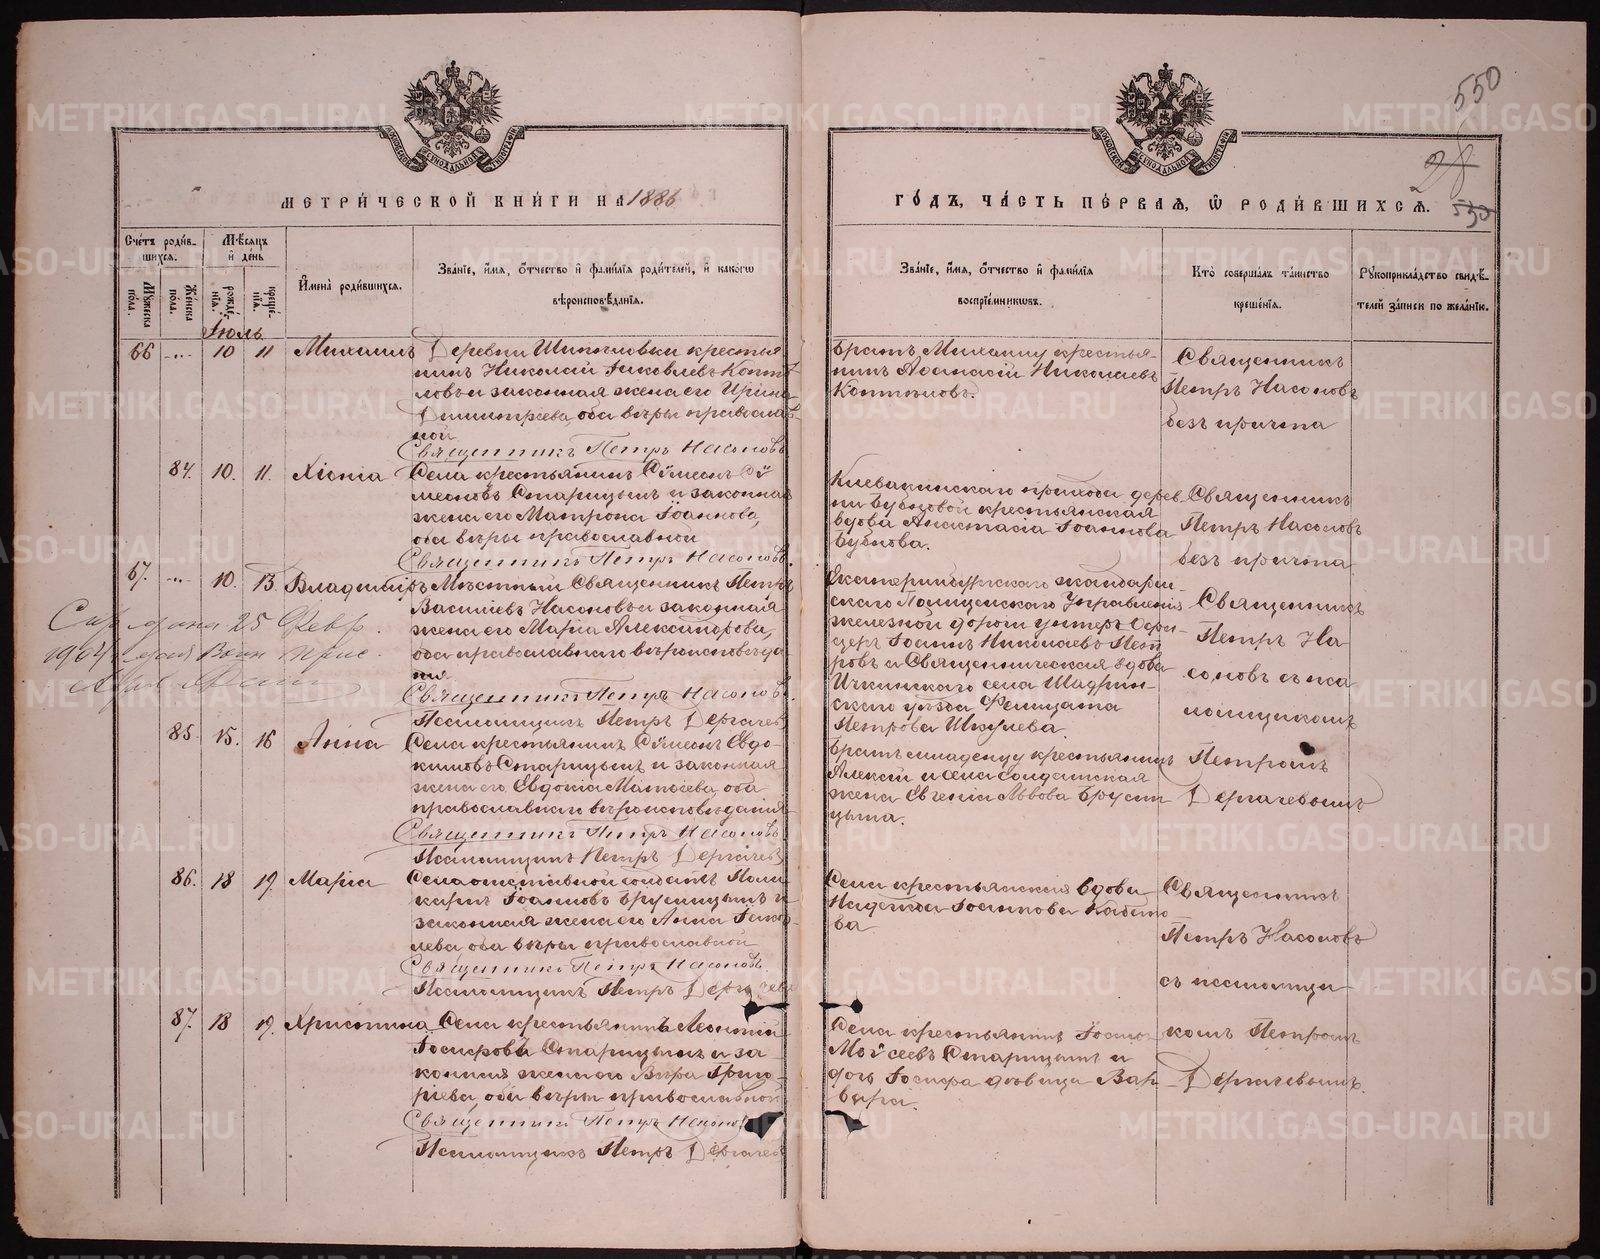 550
28
530
МЕТРИ́ЧЕСКОЙ КНИ́ГИ НА 1886
ГО́ДЪ, ЧА́СТЬ ПЕ́РВАЯ, Ѡ РОДИ́ВШИХСЯ.
Сче́тъ роди́вшихся.
Мꙋжеска по́ла.
Же́нска по́ла.
Мѣ́сяцъ и де́нь
рожде́нїя.
креще́нїя.
Имена̀ роди́вшихся.
Зва́нїе, и́мя, о́тчество и фами́лїя роди́телей, и како́гѡ
вѣроисповѣ́данїя.
Зва́нїе, и́мя, о́тчество и фами́лїя
воспрїе́мникѡвъ.
Кто̀ соверша́лъ та́инство
креще́нїя.
Рꙋкоприкла́дство свидѣ́телей за́писи по жела́нїю.
Іюль
66 -..- 10 11 Михаилъ
Деревни Шипиловки крестья
нинъ Николай Іаковлевъ Копт
ловъ и законная жена его Ирина
Димитріева, оба вѣры православ
ной
Священникъ Петръ Насоновъ
Братъ Михаилу крестья-
нинъ Аѳанасій Николаевъ
Священникъ
Петръ Насоновъ
безъ причта
84. 10. 11. Хіонія
Села крестьянинъ Сѵмеонъ Сѵ
меоновъ Старицынъ и законная
жена его Матрона Іоаннова,
оба вѣры православной
Священникъ Петръ Насоновъ.
Киевакинскаго прихода дерев
ни Бубновой крестьянская
вдова Анастасія Іоаннова
Бубнова.
Священникъ
Петръ Насоновъ
безъ причта
67. -..- 10. 13. Владиміръ
Мѣстный Священникъ Петръ
Васильевъ Насоновъ и законная
жена его Марія Александрова,
оба православнаго вѣроисповѣда
нія.
Священникъ Петръ Насоновъ.
Псаломщикъ Петръ Дергачев
25 Февр.
1904
Екатеринбургскаго жандарм
скаго Полицейскаго Управленія
железной дороги унтеръ Офи-
церъ Іоаннъ Николаевъ Пет
ровъ и Священническая вдова
Ичкинскаго села Шадрин-
скаго уѣзда Фелицата
Петрова Шкулева.
Священникъ
Петръ На
соновъ съ пса
ломщикомъ
Петромъ
Дергачевымъ
85. 15. 16 Анна
Села крестьянинъ Сѵмеонъ Евдо-
кимовъ Старицынъ и законная
жена его Евдокія Матѳіева, оба
православнаго вѣроисповѣданія
Священникъ Петръ Насоновъ
Псаломщикъ Петръ Дергачев
Братъ младенцу крестьянинъ
Алексій и села солдатская
жена Евгенія Львова Брусни
цына.
86. 18 19. Марія
Села отставной солдатъ Поли
карпъ Іоанновъ Брусницынъ и
законная жена его Анна Іаков
лева оба вѣры православной
Священникъ Петръ Насоновъ.
Псаломщикъ Петръ Дергачевъ
Села крестьянская вдова
Надежда Іоаннова
ва
Священникъ
Петръ Насоновъ
съ псаломщи-
комъ Петромъ
Дергачевымъ.
87. 18 19. Христина
Села крестьянинъ Леонтій
Іосифовъ Старицынъ и за-
конная жена его Вѣра Григо-
ріева, оба вѣры православной
Священникъ Петръ Насоновъ
Псаломщикъ Петръ Дергачев
Села крестьянинъ Іосифъ
Моѵсеевъ Старицынъ и
дочь Іосифа дѣвица Вар-
вара.